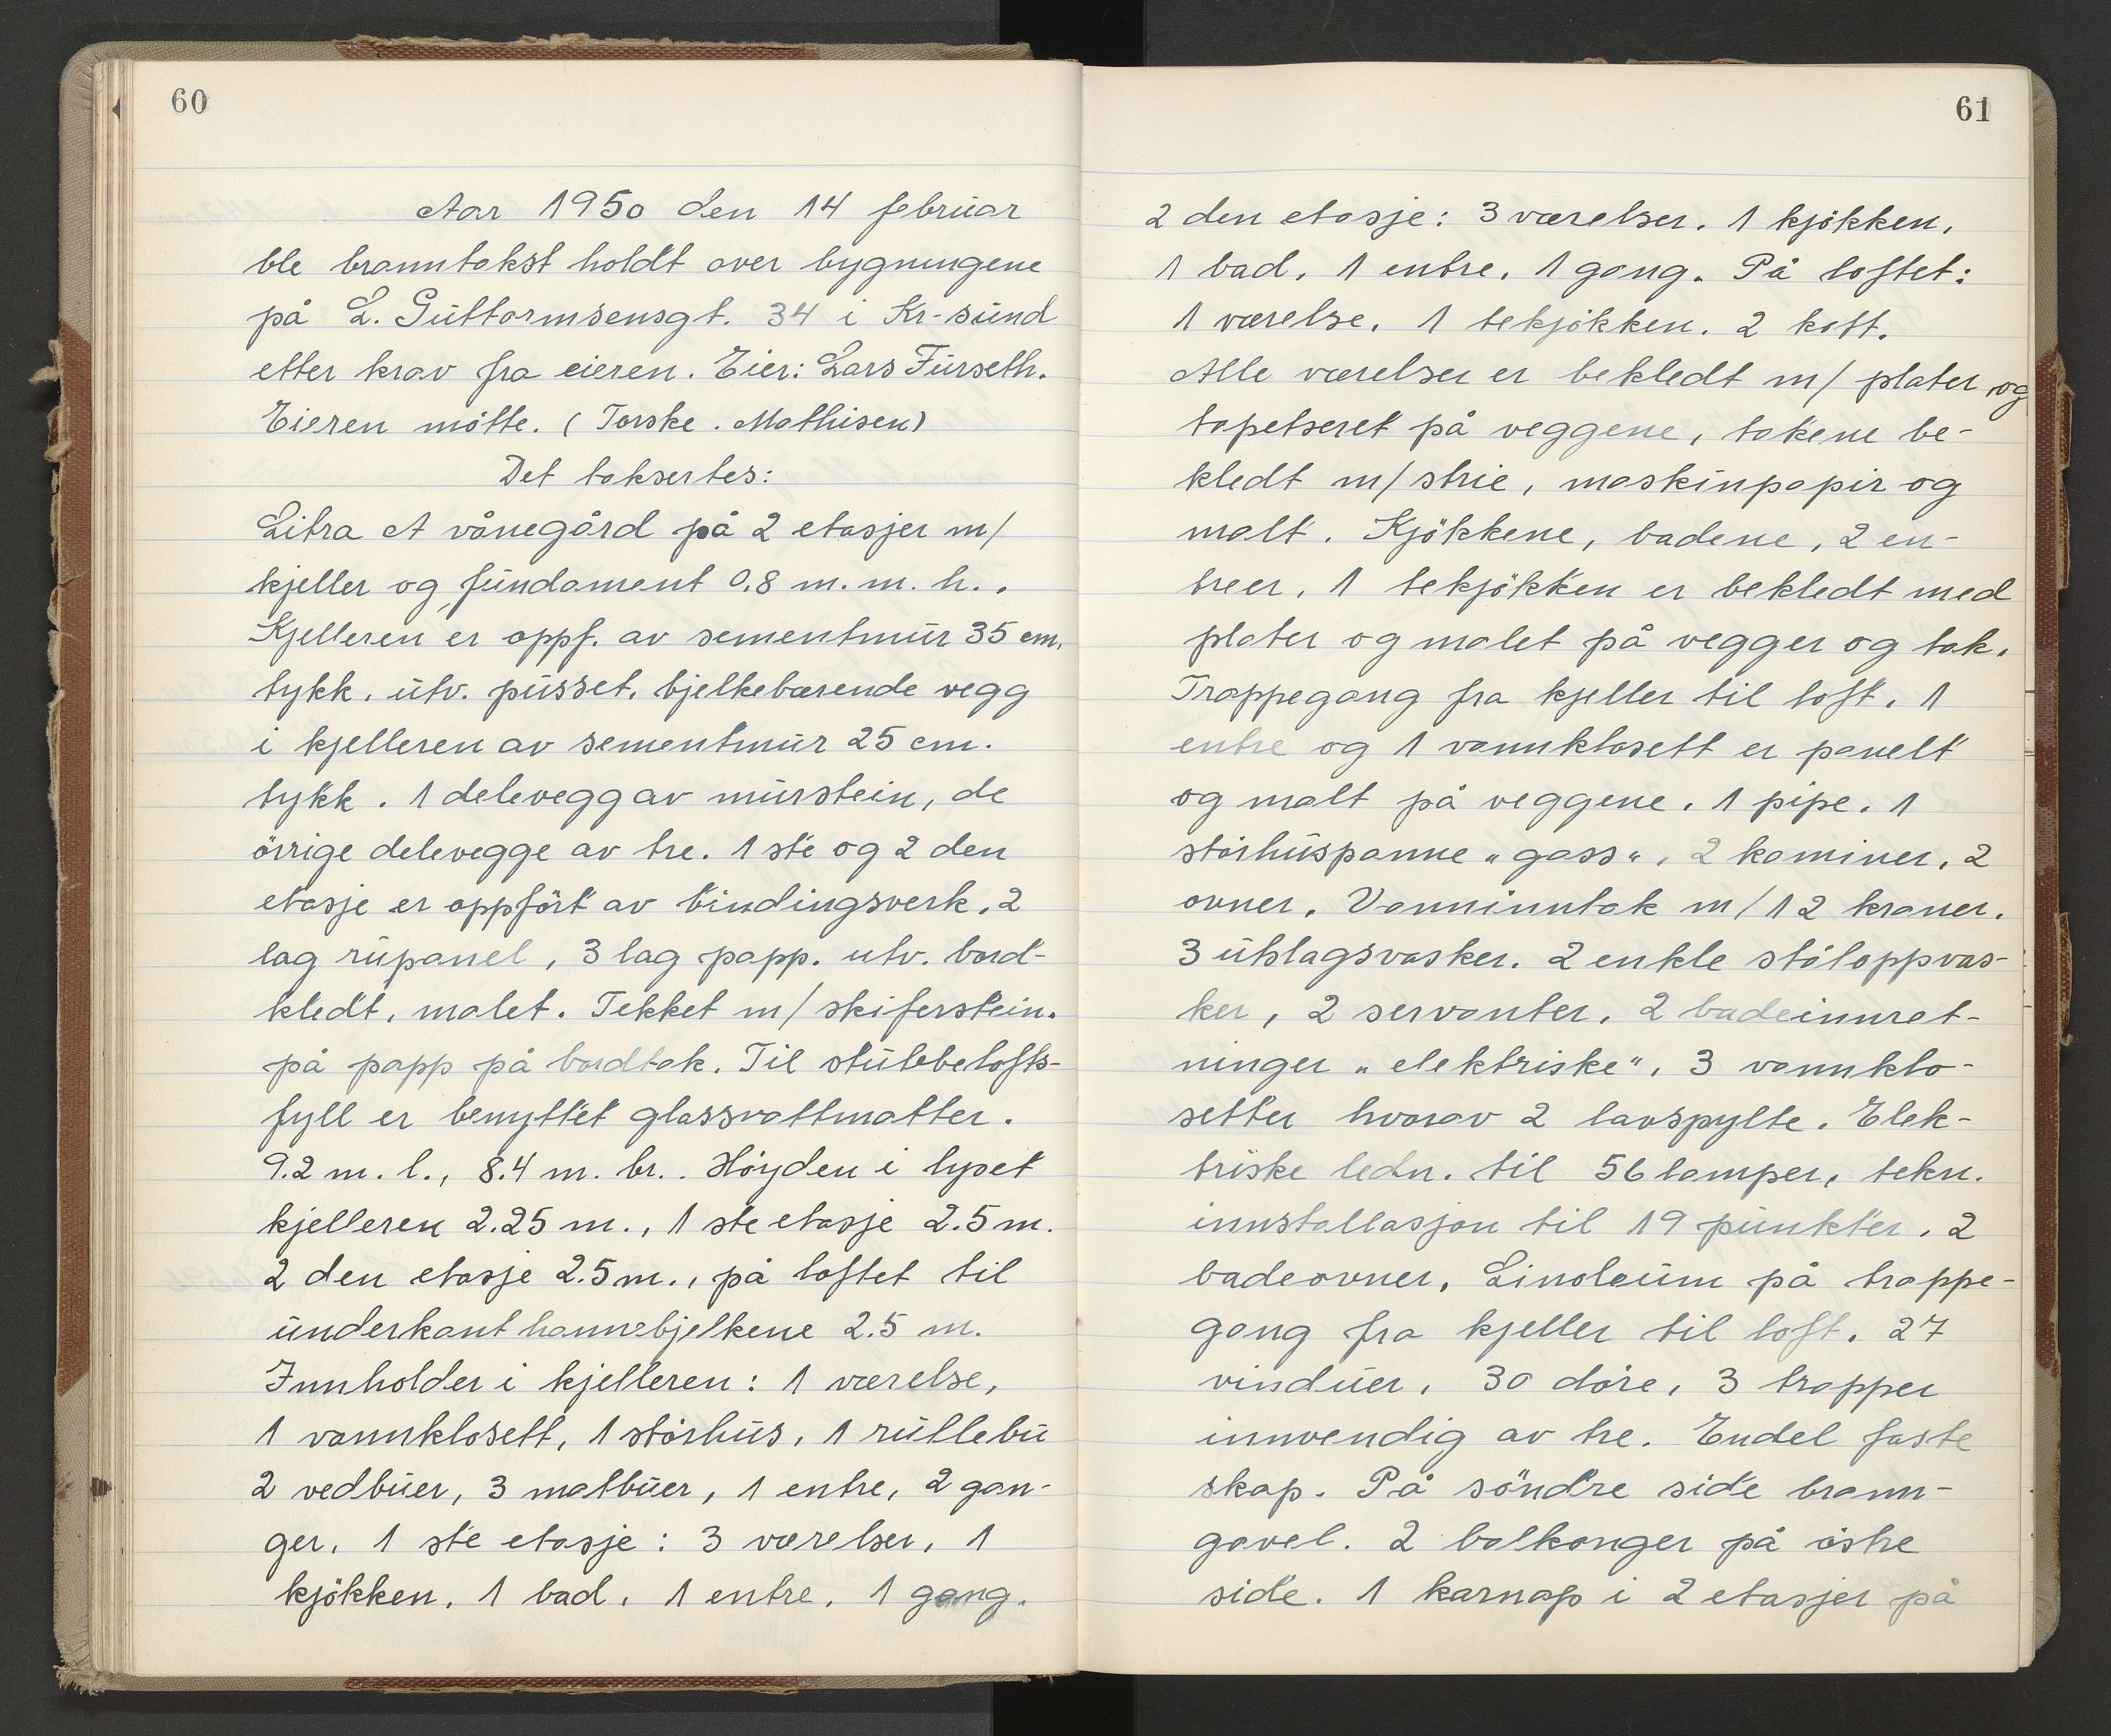 60
Aar 1950 den 14 februar
ble branntakst holdt over bygningene
på L. Guttormsensgt. 34 i Kr-sund
etter krav fra eieren. Eier: Lars Furseth.
Eieren mötte. (Torske. Mathisen)
Det taksertes:
Litra A vånegård på 2 etasjer m/
kjeller og fundament 0.8 m. m. h..
Kjelleren er oppf. av sementmur 35 cm.
tykk. utv. pusset, bjelkebærende vegg
i kjelleren av sementmur 25 cm.
tykk. 1 delevegg av murstein, de
örrige delevegge av tre. 1 ste og 2 den
etasje er oppfört av bindingsverk, 2
lag rupanel, 3 lag papp. utv. bord-
kledt, malet. Tekket m/ skiferstein.
på papp på bordtak. Til stubbelofts-
fyll er benyttet glassvattmatter.
9.2 m. l., 8.4 m. br.. Höyden i lyset
kjelleren 2.25 m., 1 ste etasje 2.5 m.
2 den etasje 2.5 m., på loftet til
underkant hannebjelkene 2.5 m.
Innholder i kjelleren: 1 værelse,
1 vannklosett, 1 störhus, 1 rullebu
2 vedbuer, 3 matbuer, 1 entre, 2 gan-
ger. 1 ste etasje: 3 værelser, 1
kjökken, 1 bad, 1 entre, 1 gang.
61
2 den etasje: 3 værelser. 1 kjökken,
1 bad, 1 entre, 1 gang. På loftet:
1 værelse, 1 tekjökken. 2 kott.
Alle værelser er bekledt m/ plater og
tapetseret på veggene, takene be-
kledt m/ strie, maskinpapir og
malt. Kjökkene, badene, 2 en-
treer, 1 tekjökken er bekledt med
plater og malet på vegger og tak.
Trappegang fra kjeller til loft, 1
entre og 1 vannklosett er panelt
og malt på veggene. 1 pipe. 1
störhuspanne "gass", 2 kaminer, 2
ovner. Vanninntak m/ 12 kraner.
3 utslagsvasker. 2 enkle ståloppvas-
ker, 2 servanter, 2 badeinnret-
ninger "elektriske", 3 vannklo-
setter hvorav 2 lavspylte. Elek-
triske ledn. til 56 lamper, tekn.
innstallasjon til 19 punkter, 2
badeovner, Linoleum på trappe-
gang fra kjeller til loft. 27
vinduer, 30 döre, 3 trapper
innvendig av tre. Endel faste
skap. På söndre side brann-
gavel. 2 balkonger på östre
side. 1 karnap i 2 etasjer på